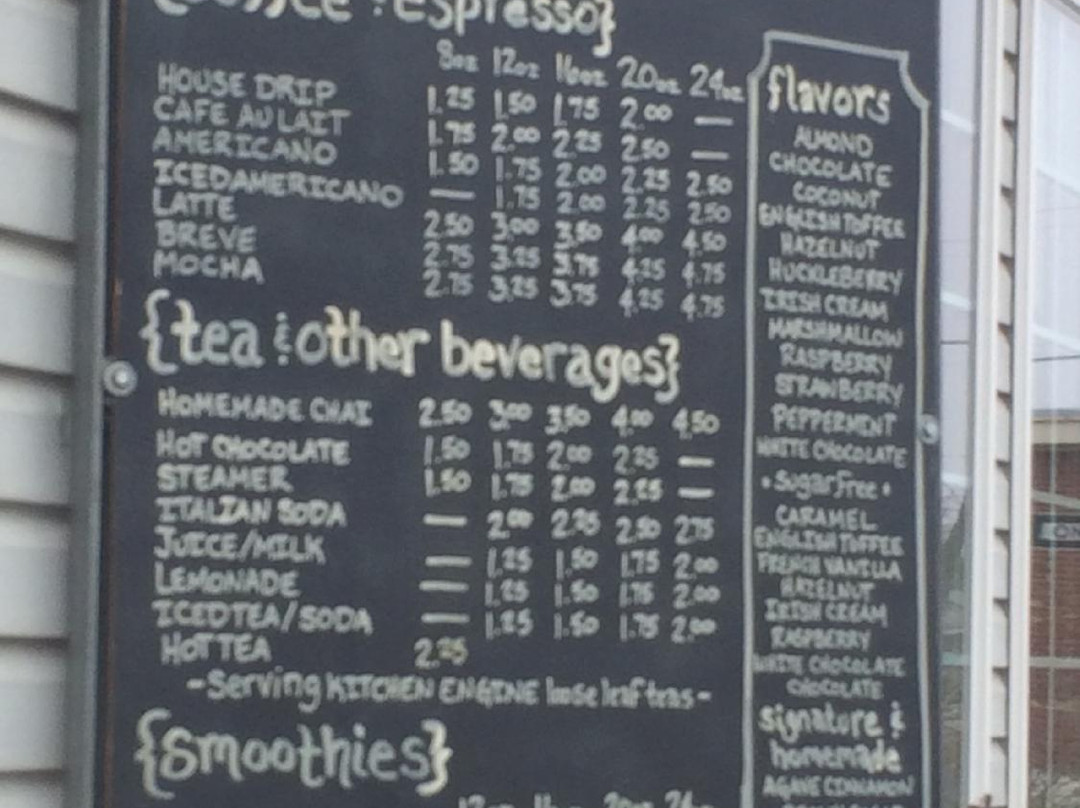 espresso}
8oz 12oz 16oz 20oz 24oz
HOUSE DRIP 1.25 1.50 1.75 2.00 —
CAFE AU LAIT 1.75 2.00 2.25 2.50 —
AMERICANO 1.50 1.75 2.00 2.25 2.50
ICED AMERICANO — 1.75 2.00 2.25 2.50
LATTE 2.50 3.00 3.50 4.00 4.50
BREVE 2.75 3.25 3.75 4.25 4.75
MOCHA 2.75 3.25 3.75 4.25 4.75
{tea & other beverages}
HOMEMADE CHAI 2.50 3.00 3.50 4.00 4.50
HOT CHOCOLATE 1.50 1.75 2.00 2.25 —
STEAMER 1.50 1.75 2.00 2.25 —
ITALIAN SODA — 2.00 2.25 2.50 2.75
JUICE/MILK — 1.25 1.50 1.75 2.00
LEMONADE — 1.25 1.50 1.75 2.00
ICED TEA/SODA — 1.25 1.50 1.75 2.00
HOT TEA 2.25
-Serving KITCHEN ENGINE loose leaf teas-
{smoothies}
flavors
ALMOND
CHOCOLATE
COCONUT
ENGLISH TOFFEE
HAZELNUT
HUCKLEBERRY
IRISH CREAM
MARSHMALLOW
RASPBERRY
STRAWBERRY
PEPPERMINT
WHITE CHOCOLATE
•Sugar Free•
CARAMEL
ENGLISH TOFFEE
FRENCH VANILLA
HAZELNUT
IRISH CREAM
RASPBERRY
WHITE CHOCOLATE
CHOCOLATE
signature &
homemade
AGAVE CINNAMON